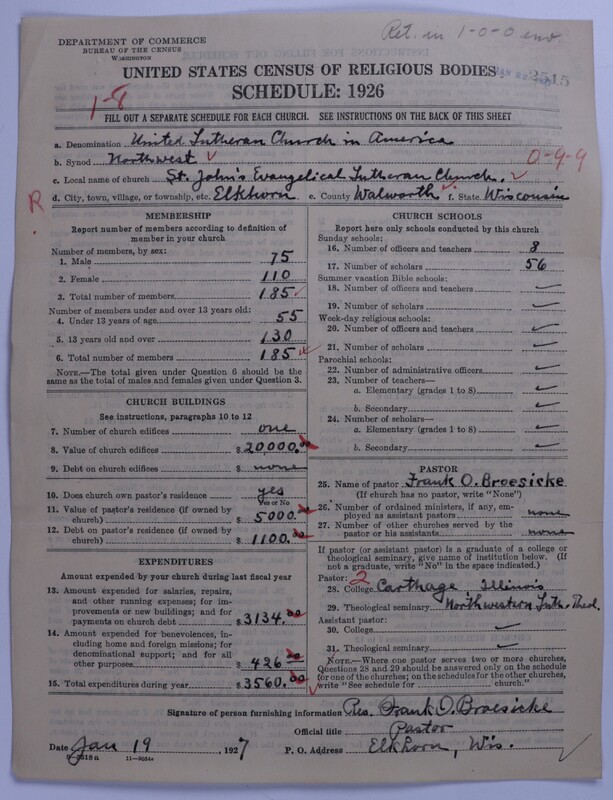 Ret. in 1-0-0 env
DEPARTMENT OF COMMERCE
BUREAU OF THE CENSUS
WASHINGTON
UNITED STATES CENSUS OF RELIGIOUS BODIES
JAN 22 2515
SCHEDULE: 1926
1-8
FILL OUT A SEPARATE SCHEDULE FOR EACH CHURCH. SEE INSTRUCTIONS ON THE BACK OF THIS SHEET
a. Denomination United Lutheran Church in America
b. Synod Northwest 0-9-9
c. Local name of church St. John's Evangelical Lutheran Church.
R d. City, town, village, or township, etc. Elkhorn e. County Walworth f. State Wisconsin
MEMBERSHIP
Report number of members according to definition of
member in your church
Number of members, by sex:
1. Male 75
2. Female 110
3. Total number of members 185
Number of members under and over 13 years old:
4. Under 13 years of age 55
5. 13 years old and over 130
6. Total number of members 185
NOTE.—The total given under Question 6 should be the
same as the total of males and females given under Question 3.
CHURCH BUILDINGS
See instructions, paragraphs 10 to 12
7. Number of church edifices one
8. Value of church edifices $20,000.00
9. Debt on church edifices $ none
10. Does church own pastor's residence yes
Yes or No
11. Value of pastor's residence (if owned by
church) $ 5000.00
12. Debt on pastor's residence (if owned by
church) $ 1100.00
EXPENDITURES
Amount expended by your church during last fiscal year
13. Amount expended for salaries, repairs,
and other running expenses; for im-
provements or new buildings; and for
payments on church debt $3134.00
14. Amount expended for benevolences, in-
cluding home and foreign missions; for
denominational support; and for all
other purposes $ 426.00
15. Total expenditures during year $3560.00
CHURCH SCHOOLS
Report here only schools conducted by this church
Sunday schools:
16. Number of officers and teachers 8
17. Number of scholars 56
Summer vacation Bible schools:
18. Number of officers and teachers
19. Number of scholars
Week-day religious schools:
20. Number of officers and teachers
21. Number of scholars
Parochial schools:
22. Number of administrative officers
23. Number of teachers—
a. Elementary (grades 1 to 8)
b. Secondary
24. Number of scholars—
a. Elementary (grades 1 to 8)
b. Secondary
PASTOR
25. Name of pastor Frank O. Broesicke
(If church has no pastor, write "None")
26. Number of ordained ministers, if any, em-
ployed as assistant pastors none
27. Number of other churches served by the
pastor or his assistants none
If pastor (or assistant pastor) is a graduate of a college or
theological seminary, give name of institution below. (If
not a graduate, write "No" in the space indicated.)
Pastor: 2
28. College Carthage Illinois
29. Theological seminary Northwestern Luth. Theol.
Assistant pastor:
30. College
31. Theological seminary
NOTE.—Where one pastor serves two or more churches,
Questions 28 and 29 should be answered only on the schedule
for one of the churches; on the schedules for the other churches,
write "See schedule for church."
Signature of person furnishing information Rev. Frank O. Broesicke
Official title Pastor
Date Jan 19, 1927 P. O. Address Elkhorn, Wis.
11—9554